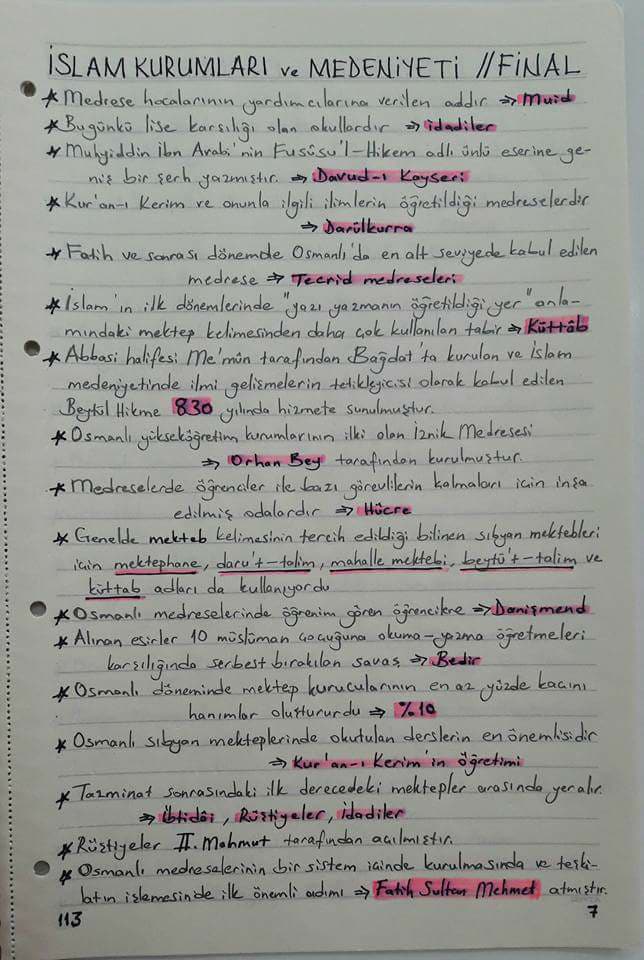 İSLAM KURUMLARI ve MEDENİYETİ // FİNAL
* Medrese hocalarının yardımcılarına verilen addır ⇒ Muid
* Bugünkü lise karşılığı olan okullardır ⇒ idadiler
* Muhyiddin İbn Arabi'nin Fusûsu'l-Hikem adlı ünlü eserine ge-
niş bir şerh yazmıştır. ⇒ Davud-ı Kayseri
* Kur'an-ı Kerim ve onunla ilgili ilimlerin öğretildiği medreselerdir
⇒ Darülkurra
* Fatih ve sonrası dönemde Osmanlı'da en alt seviyede kabul edilen
medrese ⇒ Tecrid medreseleri
* İslam'ın ilk dönemlerinde "yazı yazmanın öğretildiği yer" anla-
mındaki mektep kelimesinden daha çok kullanılan tabir ⇒ Küttâb
* Abbasi halifesi Me'mûn tarafından Bağdat'ta kurulan ve İslam
medeniyetinde ilmi gelişmelerin tetikleyicisi olarak kabul edilen
Beytül Hikme 830 yılında hizmete sunulmuştur.
* Osmanlı yükseköğretim kurumlarının ilki olan İznik Medresesi
⇒ Orhan Bey tarafından kurulmuştur.
* Medreselerde öğrenciler ile bazı görevlilerin kalmaları için inşa
edilmiş odalardır ⇒ Hücre
* Genelde mekteb kelimesinin tercih edildiği bilinen sıbyan mektebleri
için mektephane, daru't-talim, mahalle mektebi, beytü't-talim ve
küttab adları da kullanıyordu
* Osmanlı medreselerinde öğrenim gören öğrencilere ⇒ Danişmend
* Alınan esirler 10 müslüman çocuğuna okuma-yazma öğretmeleri
karşılığında serbest bırakılan savaş ⇒ Bedir
* Osmanlı döneminde mektep kurucularının en az yüzde kaçını
hanımlar oluştururdu ⇒ %10
* Osmanlı sıbyan mekteplerinde okutulan derslerin en önemlisidir
⇒ Kur'an-ı Kerim'in öğretimi
* Tazminat sonrasındaki ilk derecedeki mektepler arasında yer alır.
⇒ İbtidâi, Rüştiyeler, İdadiler
* Rüştiyeler II. Mahmut tarafından açılmıştır.
* Osmanlı medreselerinin bir sistem içinde kurulmasında ve teşki-
latın işlemesinde ilk önemli adımı ⇒ Fatih Sultan Mehmet atmıştır.
113 7